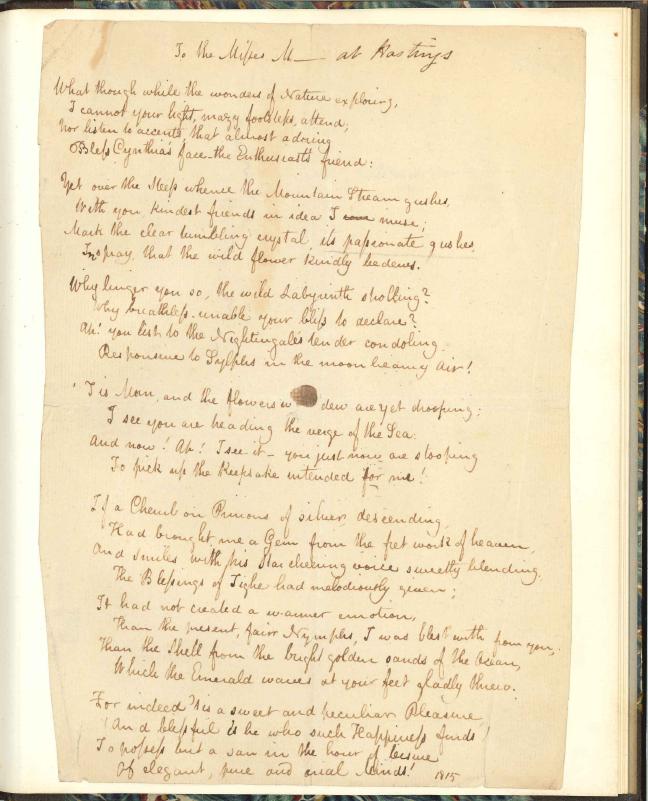 To the Misses M— at Hastings
What though while the wonders of Nature exploring,
I cannot your light, mazy footsteps, attend;
Nor listen to accents, that almost adoring
Bless Cynthia's face the Enthusiasts friend:
Yet over the Steep whence the Mountain Stream gushes,
With you kindest friends in idea I muse;
Mark the clear tumbling crystal, its passionate gushes,
Its spray, that the wild flower kindly bedews.
Why linger you so, the wild Labyrinth strolling?
Why breathless, unable your bliss to declare?
Ah! you list to the Nightingales tender condoling
Responsive to Sylphs in the moon beamy air!
'Tis Morn, and the flowers w dew are yet drooping;
I see you are treading the verge of the Sea:
And now! Ah! I see it— you just now are stooping
To pick up the Keepsake intended for me!
If a Cherub on Pinions of silver descending,
Had brought me a Gem from the fret work of heaven,
And Smiles with his Star cheering voice sweetly blending,
The Blessings of Tighe had melodiously given;
It had not created a warmer emotion,
Than the present, fair Nymphs, I was blest with from you,
Than the Shell from the bright golden sands of the Ocean,
Which the Emerald waves at your feet gladly threw.
For indeed 'tis a sweet and peculiar Pleasure
(And blissful is he who such Happiness finds)
To possess but a span in the hour of leisure
Of elegant, pure and aerial Minds! 1815